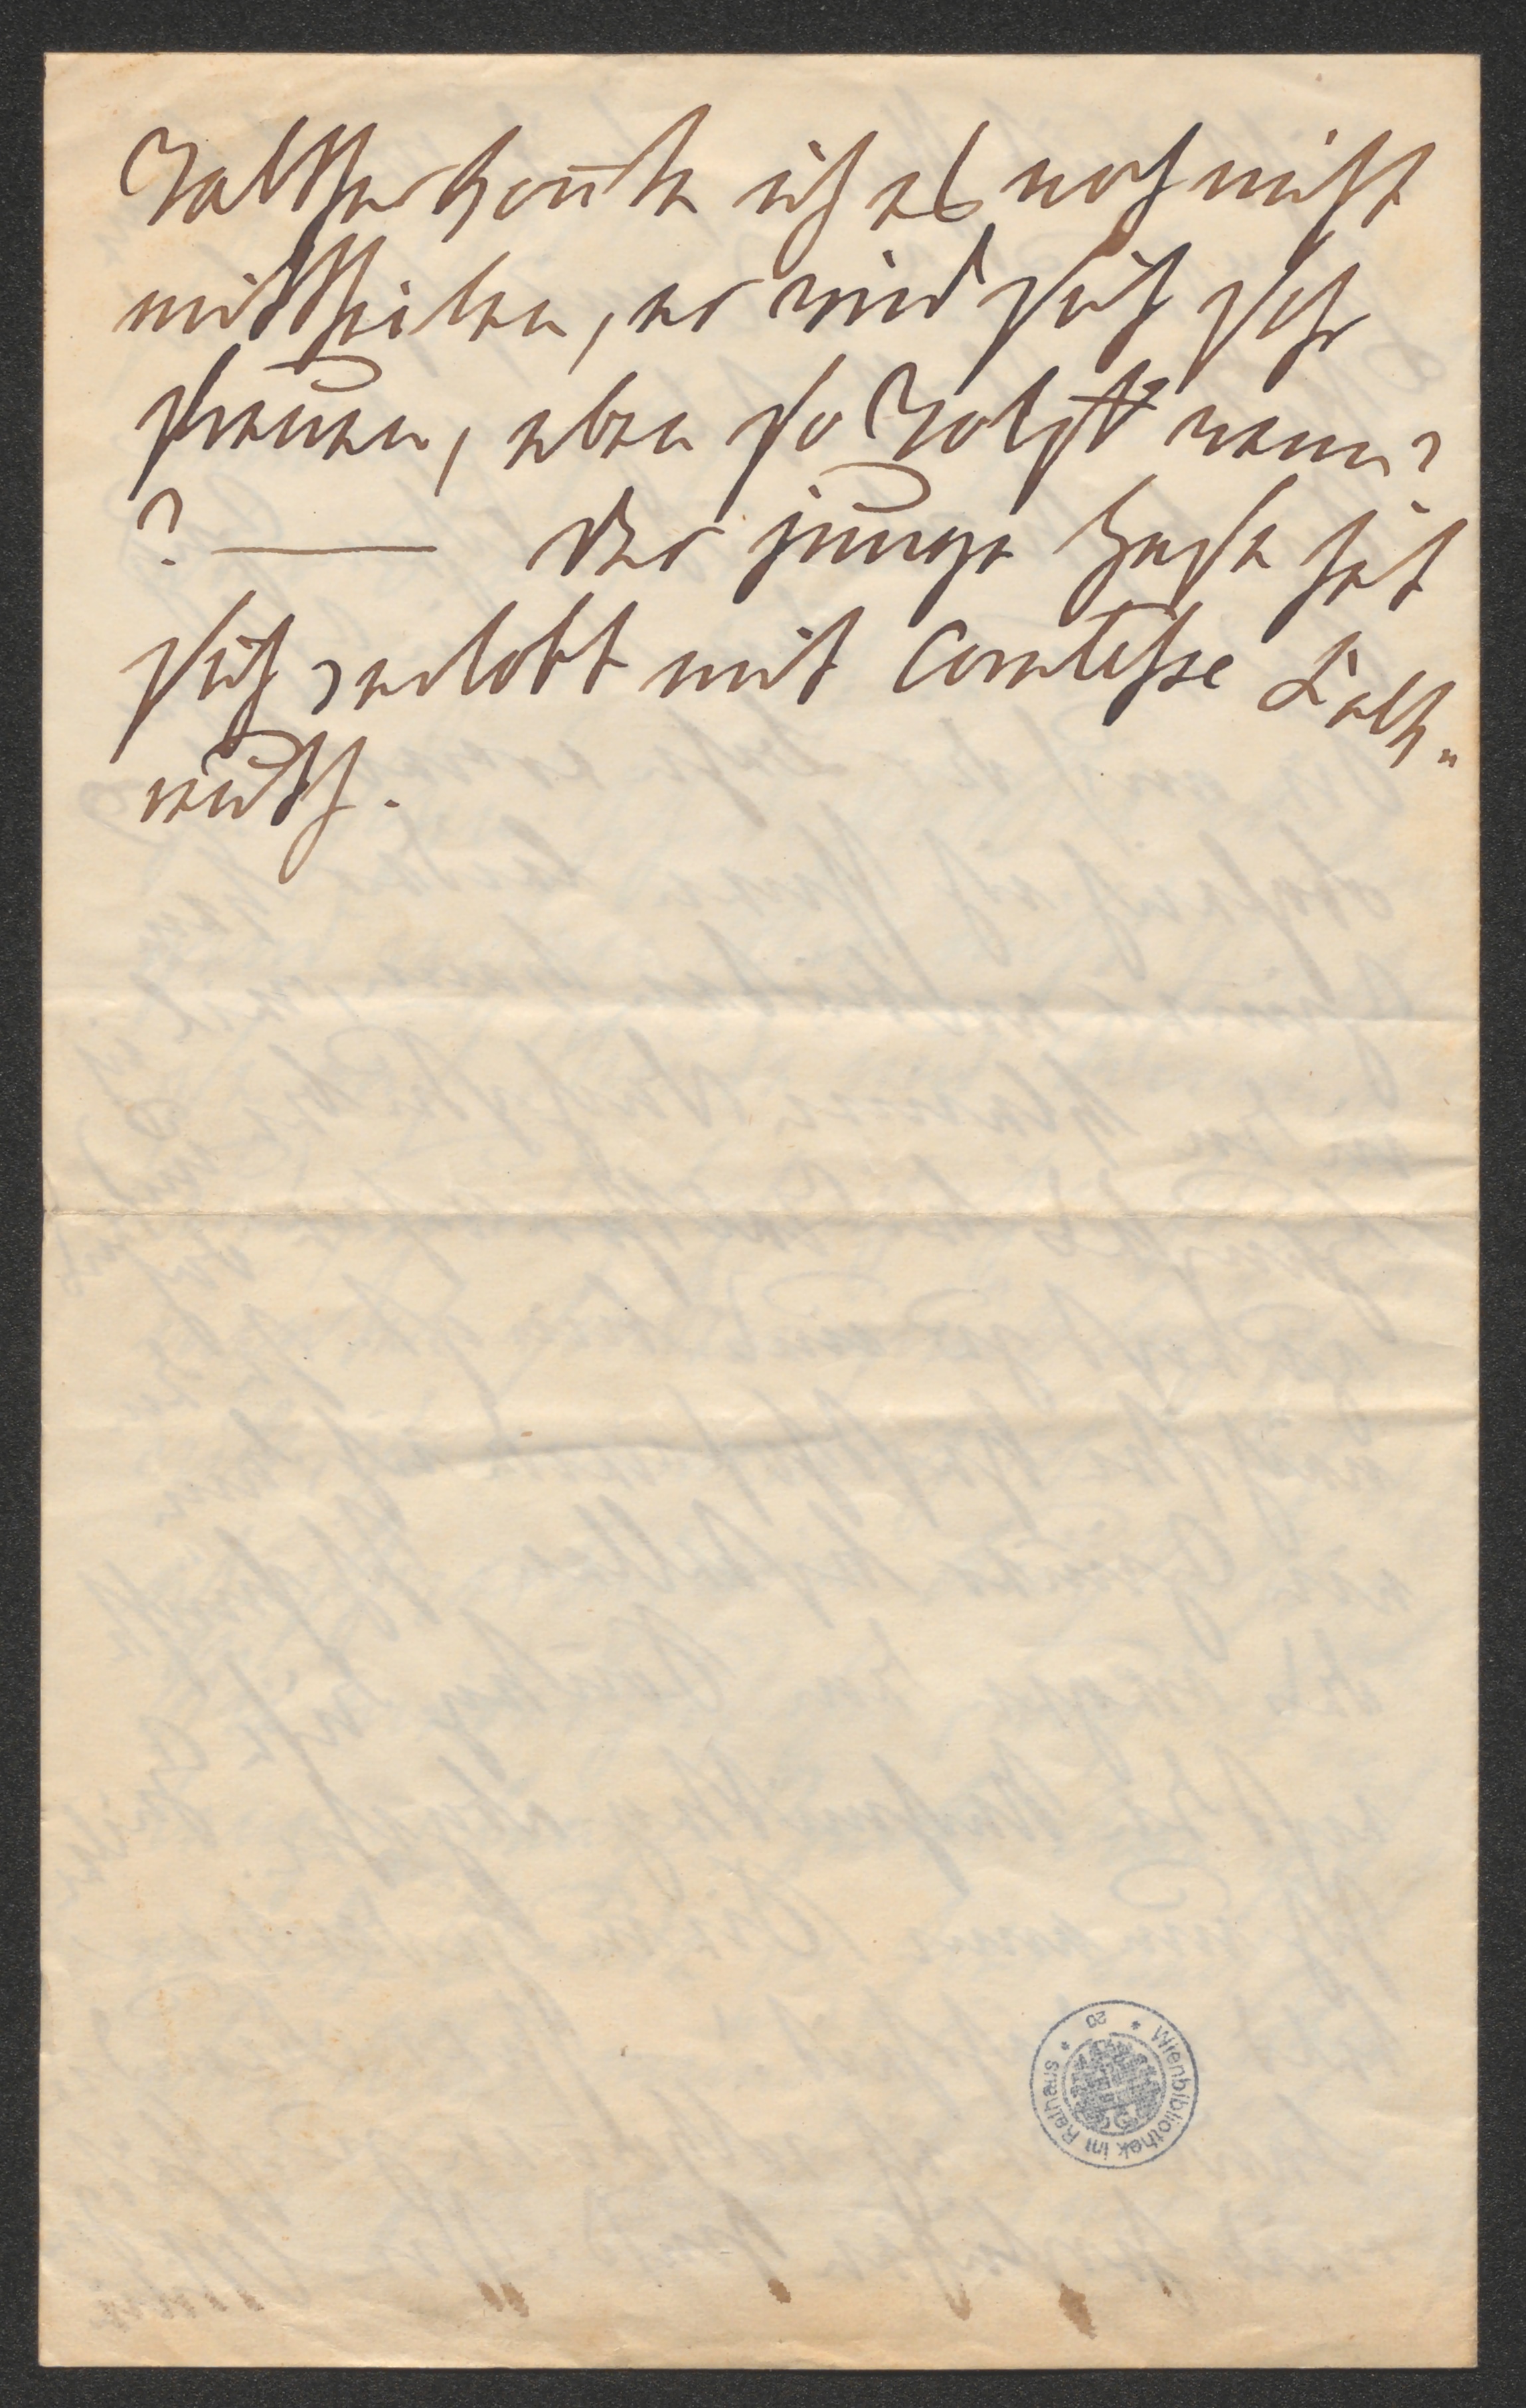 Walther konnte ich es noch nicht
mittheilen, er wird sich sehr
freuen, aber so Wolf wenn?
? — Der junge Hase hat
sich verlobt mit Comtesse Kalk-
reuth.
Wienbibliothek im Rathaus * 20 *